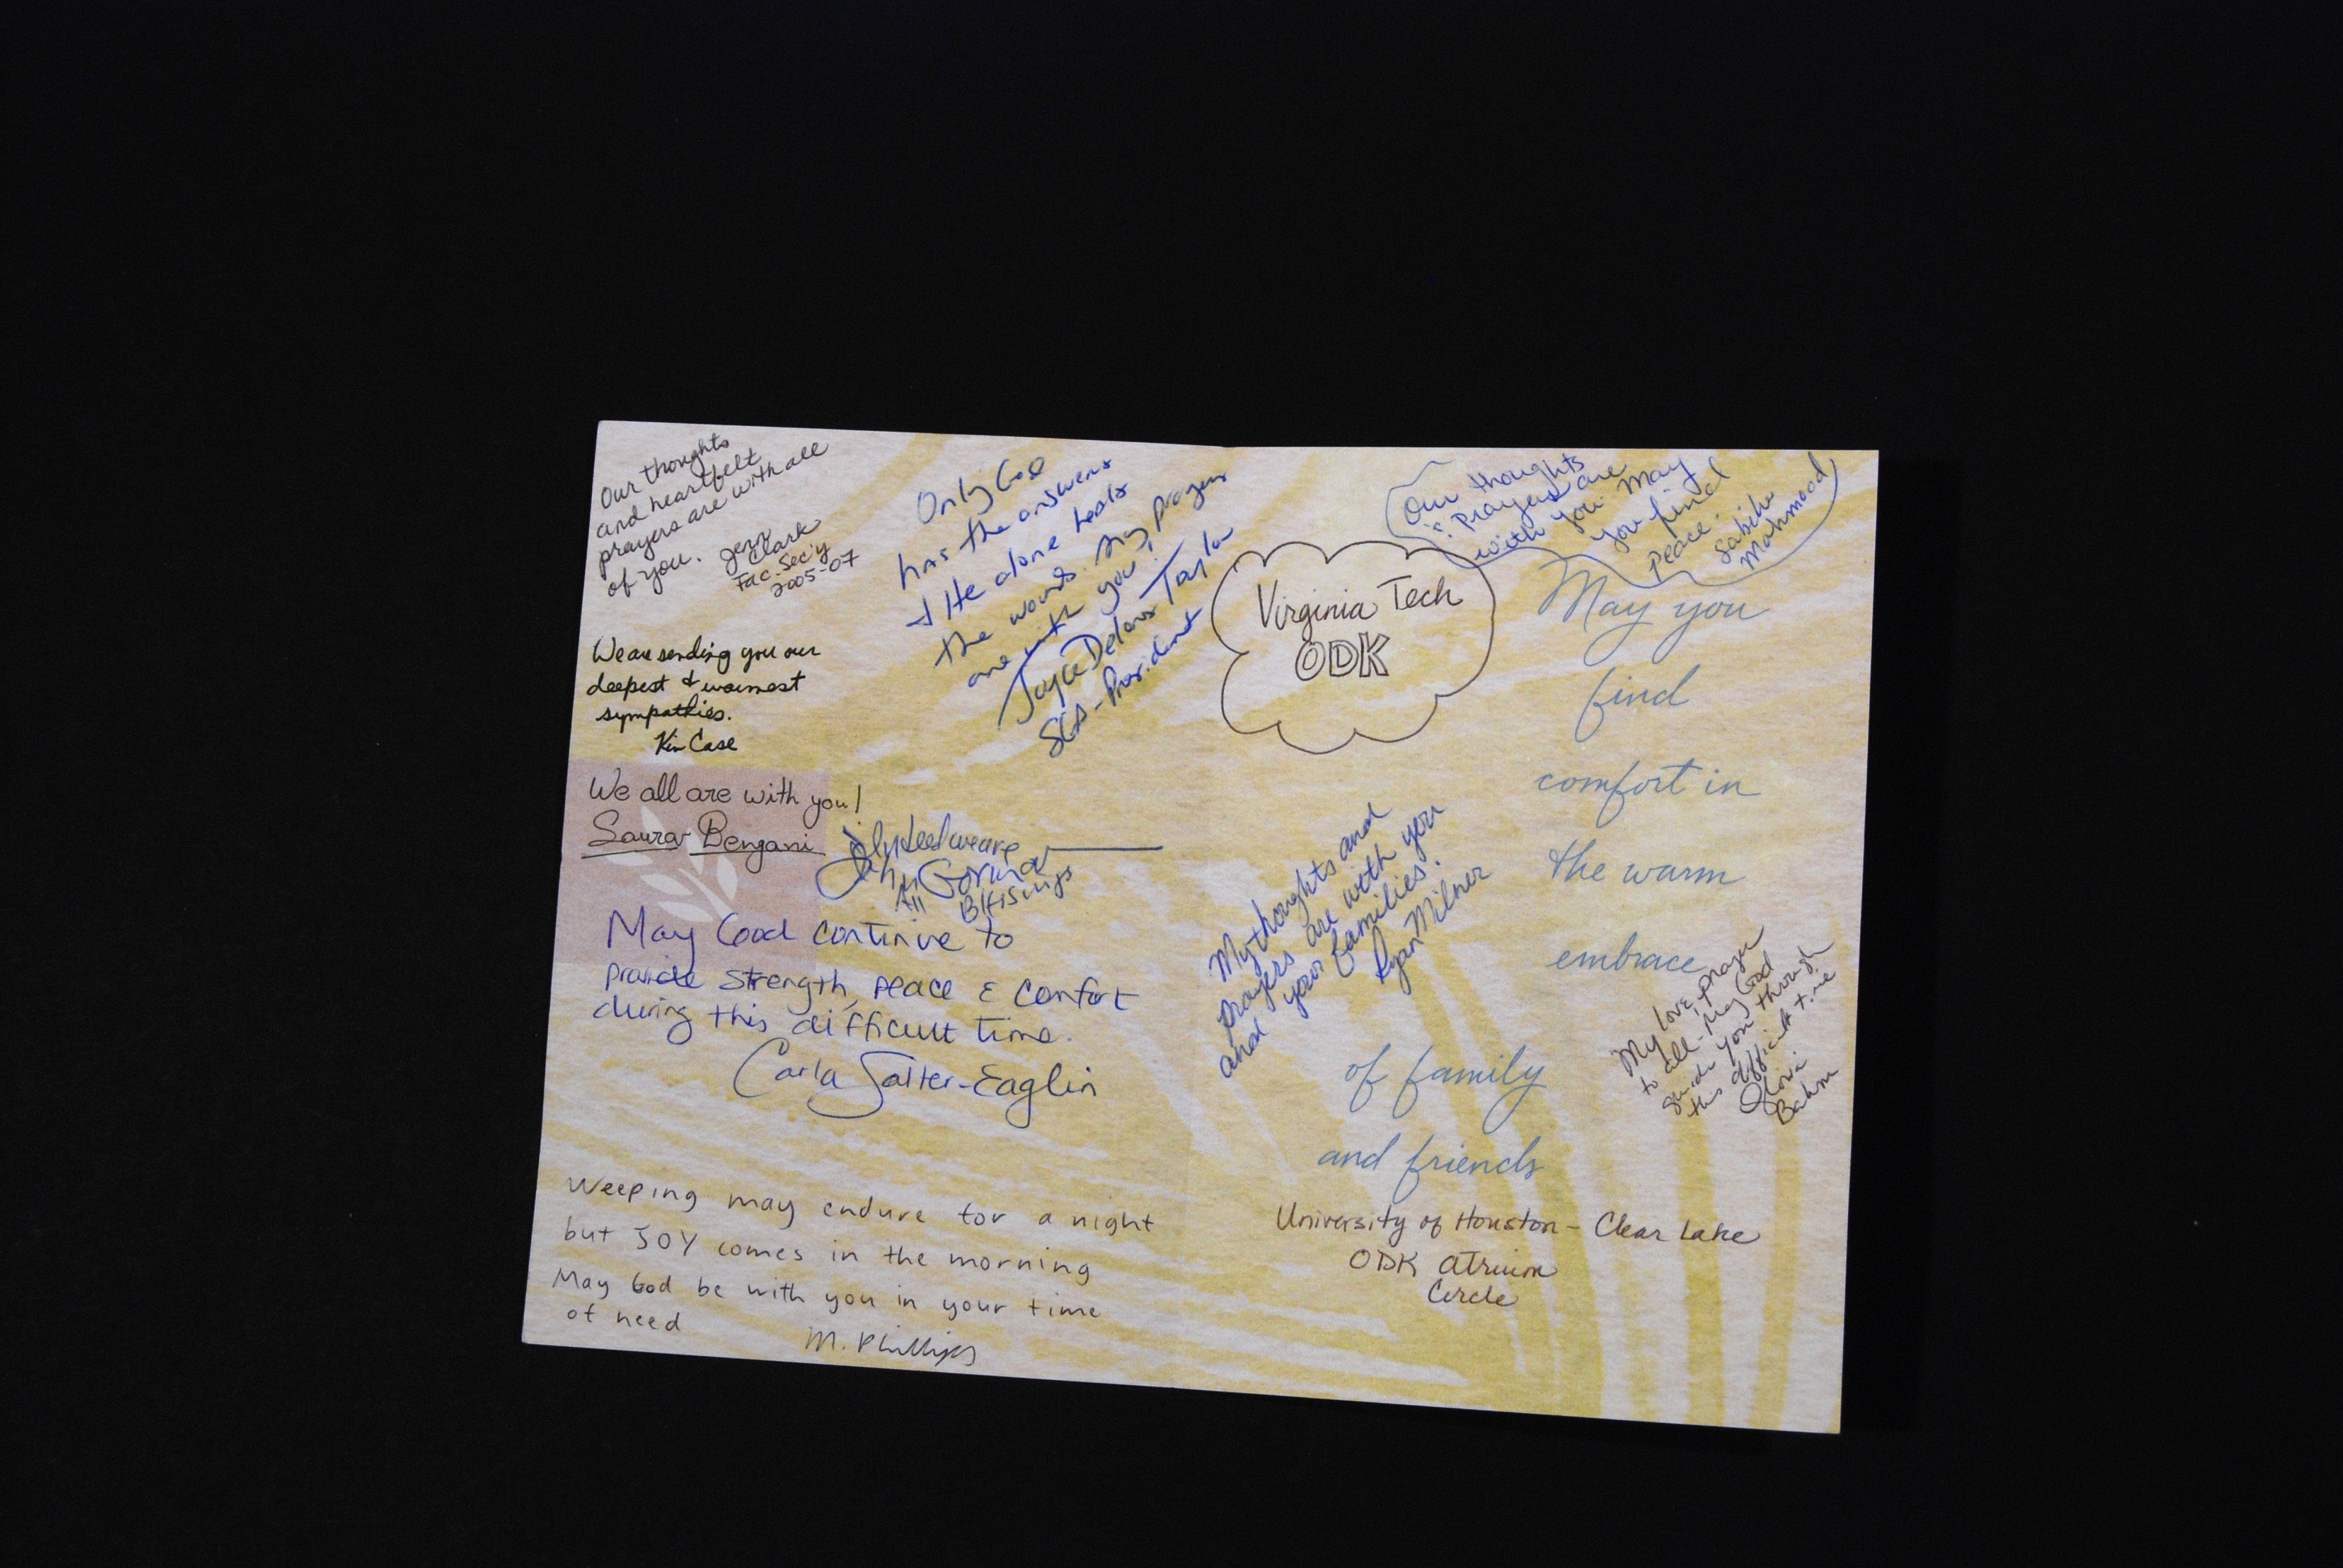 Our thoughts
and heartfelt
prayers are with all
of you.
Jenn
Clark
Fac. Sec'y
2005-07
We are sending you our
deepest & warmest
sympathies.
Kim Case
We all are with you!
Saurav Bengani
All
Blessings
May God continue to
provide strength, peace & comfort
during this difficult time.
Carla Salter-Eaglin
Weeping may endure for a night
but JOY comes in the morning
May God be with you in your time
of need
M. Phillips
Only God
has the answers
& He alone heals
the wounds. My prayers
are with you!
Joyce Delores Taylor
SGA - President
Virginia Tech
ODK
Our thoughts
& Prayers are
with you. May
you find
Peace.
Sabiha
Mahmood
May you
find
comfort in
the warm
embrace
of family
and friends
My thoughts and
prayers are with you
and your families.
Ryan Milner
My love, prayer
to all - May God
guide you through
this difficult time
Bahm
University of Houston - Clear Lake
ODK Atrium
Circle